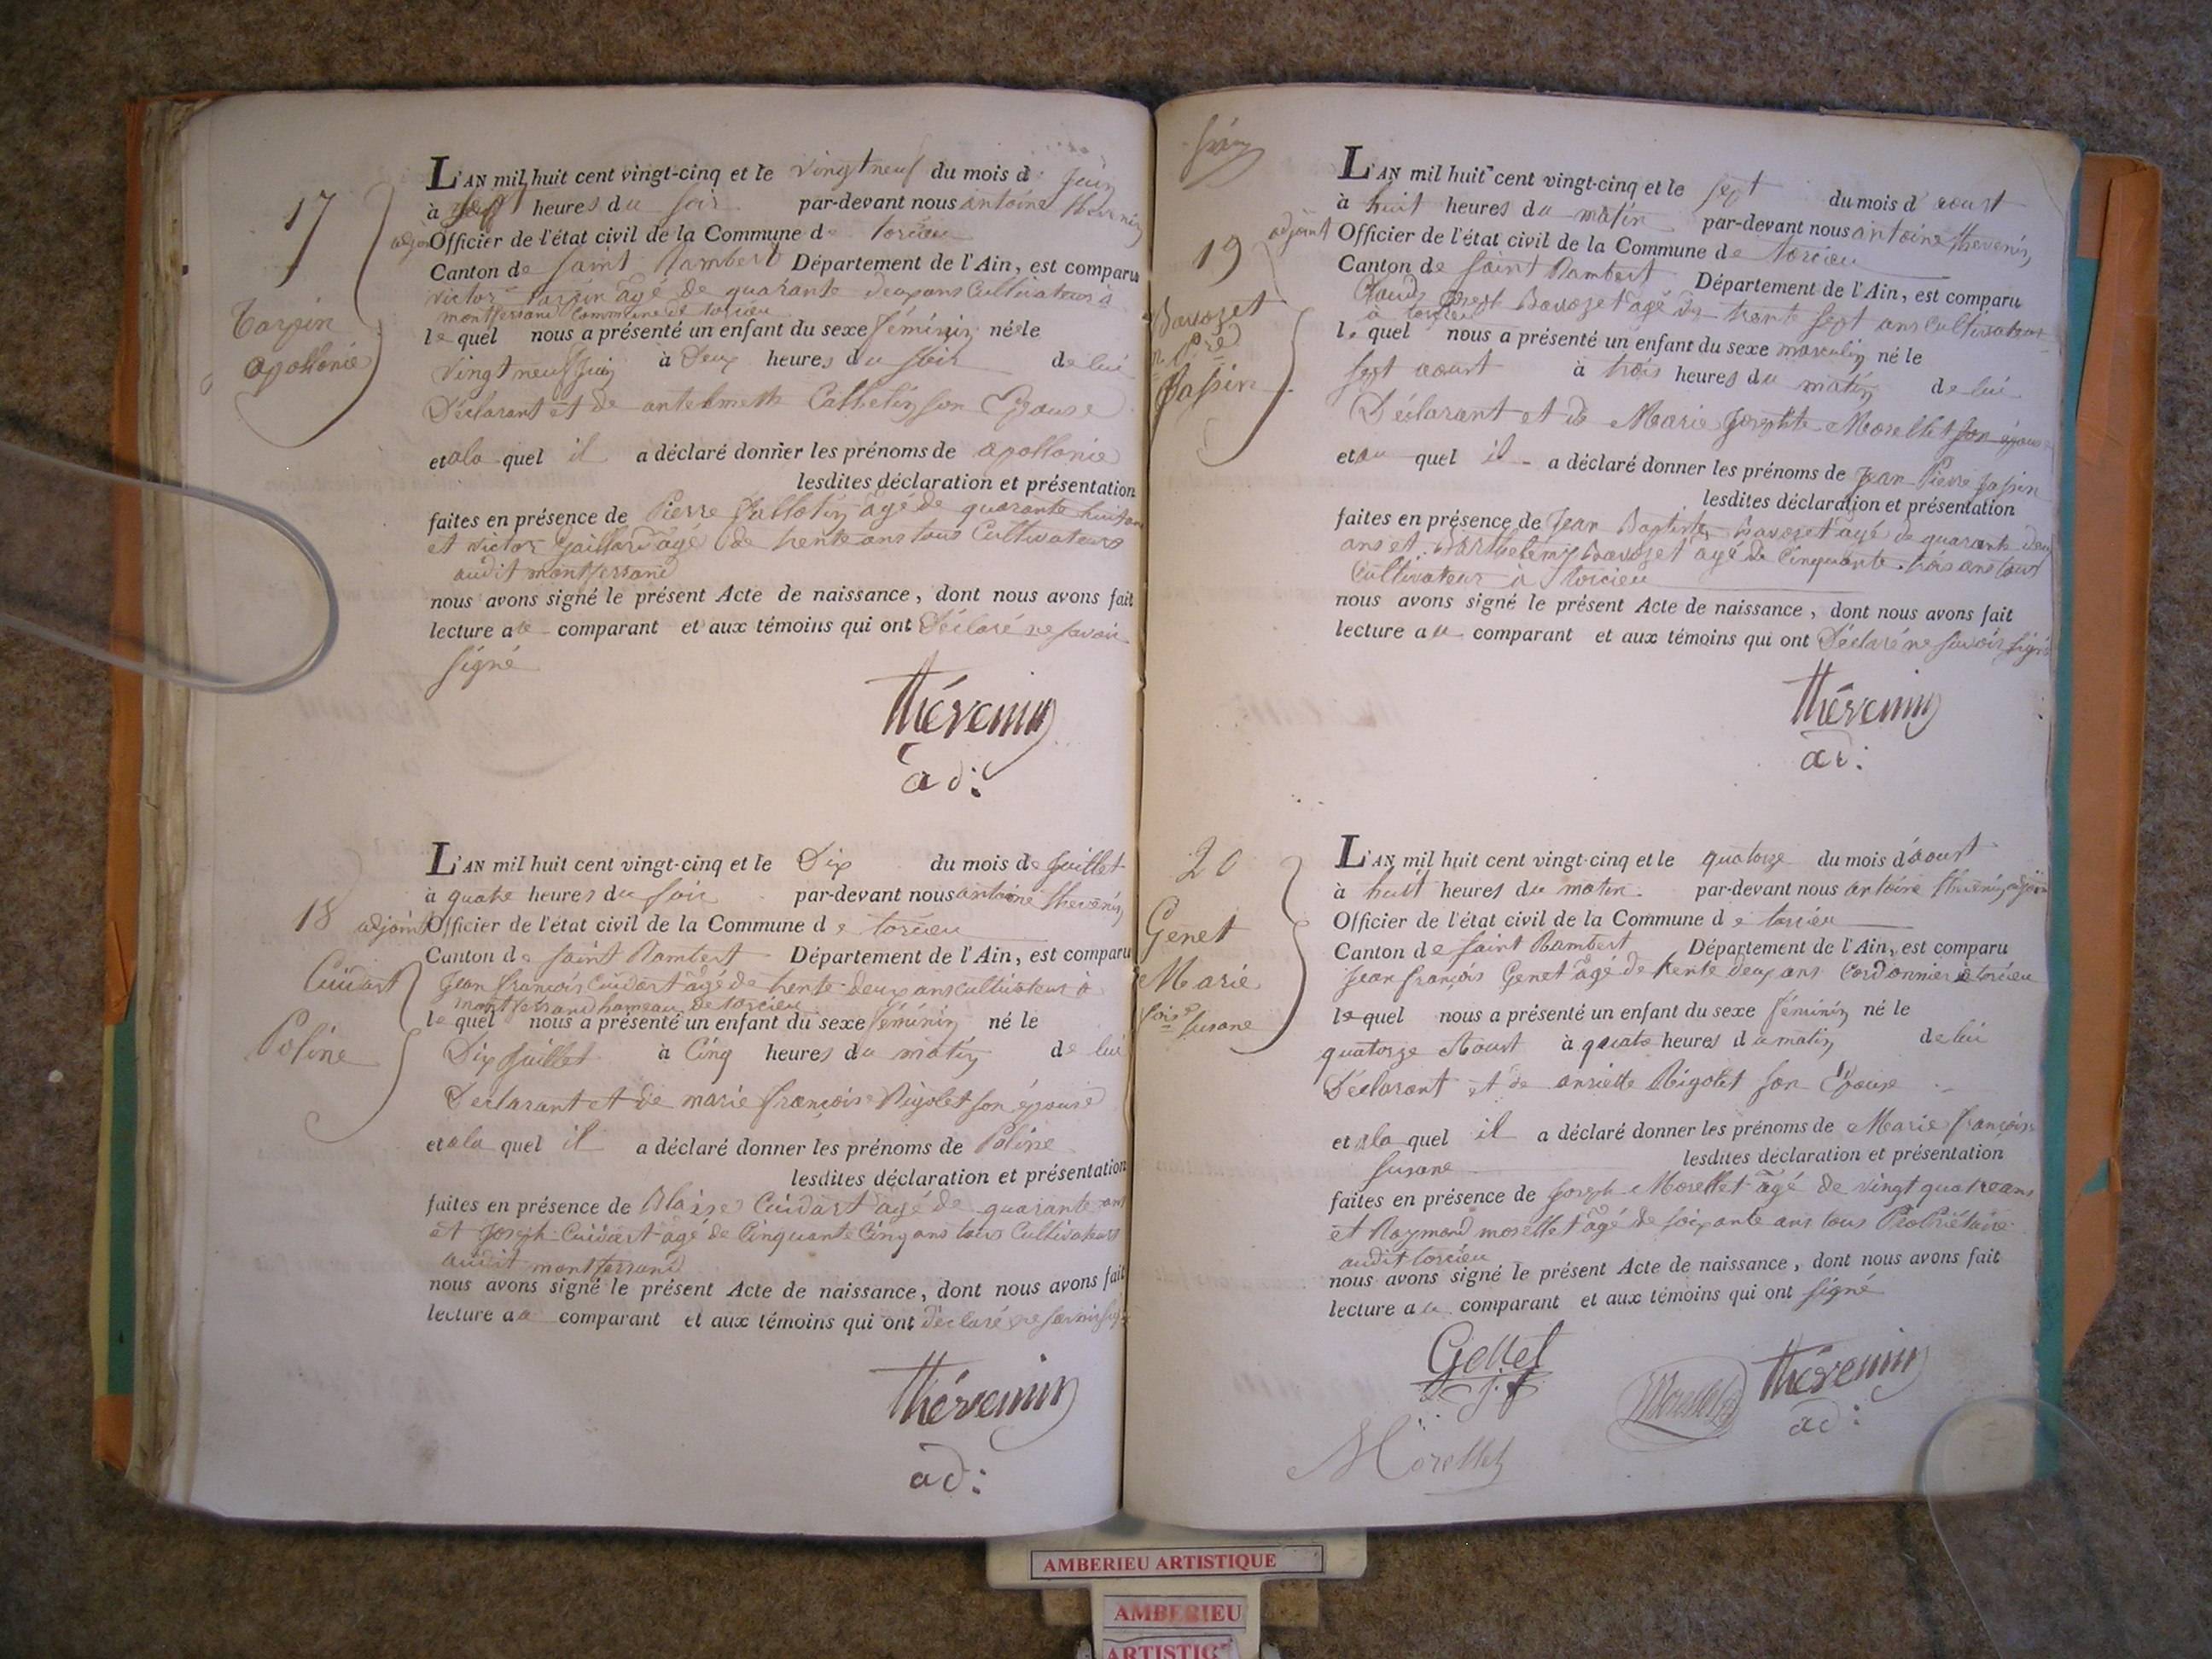 17
Tarpin
apollonie
L'AN mil huit cent vingt-cinq et le vingt neuf du mois de juin
à heures du soir par-devant nous antoine thevenin
adjoint Officier de l'état civil de la Commune de torcieu
Canton de saint Rambert Département de l'Ain, est comparu
victor Tarpin âgé de quarante deux ans Cultivateur à
montferrand Commune de torcieu
le quel nous a présenté un enfant du sexe féminin née le
vingt neuf juin à deux heures du soir de lui
Déclarant et de antelmette Cathelin son Epouse
et a la quel il a déclaré donner les prénoms de apollonie
lesdites déclaration et présentation
faites en présence de Pierre âgé de quarante huit ans
et victor Gaillard âgé de trente ans tous Cultivateurs
audit montferrand
nous avons signé le présent Acte de naissance, dont nous avons fait
lecture au comparant et aux témoins qui ont Déclaré ne savoir
signé
thévenin
ad:
18
Cuidart
Poline
L'AN mil huit cent vingt-cinq et le Dix du mois de juillet
à quatre heures du soir par-devant nous antoine thevenin
adjoint Officier de l'état civil de la Commune de torcieu
Canton de saint Rambert Département de l'Ain, est comparu
jean françois Cuidart âgé de trente deux ans cultivateur à
montferrand hameau de torcieu
le quel nous a présenté un enfant du sexe féminin né le
Dix juillet à Cinq heures du matin de lui
Declarant et de marie françoise Rigolet son épouse
et a la quel il a déclaré donner les prénoms de Poline
lesdites déclaration et présentation
faites en présence de Blaise Cuidart âgé de quarante ans
et joseph Cuidart âgé de Cinquante Cinq ans tous Cultivateurs
audit montferrand
nous avons signé le présent Acte de naissance, dont nous avons fait
lecture au comparant et aux témoins qui ont déclaré ne savoir signé
thévenin
ad:
19
Bavozet
Jn Pre
Jassin
L'AN mil huit cent vingt-cinq et le sept du mois d'aoust
à huit heures du matin par-devant nous antoine thevenin
adjoint Officier de l'état civil de la Commune de torcieu
Canton de saint Rambert Département de l'Ain, est comparu
Claude joseph Bavozet âgé de trente sept ans cultivateur
à torcieu
le quel nous a présenté un enfant du sexe masculin né le
sept aoust à trois heures du matin de lui
Déclarant et de Marie josephte Morellet son épouse
et au quel il a déclaré donner les prénoms de Jean Pierre jassin
lesdites déclaration et présentation
faites en présence de Jean Baptiste Bavozet âgé de quarante deux
ans et Barthelemy Bavozet âgé de Cinquante trois ans tous
Cultivateur à torcieu
nous avons signé le présent Acte de naissance, dont nous avons fait
lecture au comparant et aux témoins qui ont Déclaré ne savoir signé
thévenin
ad:
20
Genet
Marie
foise
susane
L'AN mil huit cent vingt-cinq et le quatorze du mois d'aoust
à huit heures du matin par-devant nous antoine thevenin adjoint
Officier de l'état civil de la Commune de torcieu
Canton de saint Rambert Département de l'Ain, est comparu
jean françois Genet âgé de trente deux ans Cordonnier à torcieu
le quel nous a présenté un enfant du sexe féminin né le
quatorze Aoust à quatre heures du matin de lui
Déclarant et de anriette Rigolet son Epouse
et a la quel il a déclaré donner les prénoms de Marie françoise
susane lesdites déclaration et présentation
faites en présence de joseph Morellet âgé de vingt quatre ans
et Raymond morellet âgé de soixante ans tous Propriétaire
audit torcieu
nous avons signé le présent Acte de naissance, dont nous avons fait
lecture au comparant et aux témoins qui ont signé
Genet
j. f
Morellet
thévenin
ad:
Morellet
AMBERIEU ARTISTIQUE
AMBERIEU